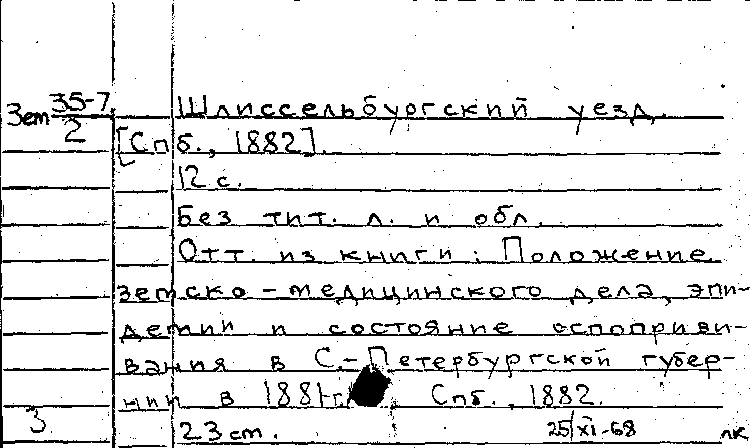 Зем 35-7
2
Шлиссельбургский уезд.
[Спб., 1882].
12 с.
Без тит. л. и обл.
Отт. из книги: Положение
земско-медицинского дела, эпи-
демии и состояние оспоприви-
вания в С.-Петербургской губер-
нии в 1881 г. Спб., 1882.
3
23 см.
25/XI-68
лк